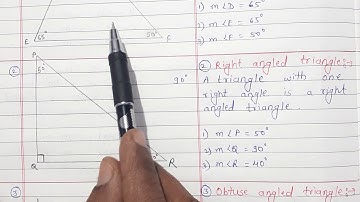 65°
50°
E
F
1) m∠D = 65°
2) m∠E = 65°
3) m∠F = 50°
②
P
5°
90°
Q
R
② Right angled triangle:→
A triangle with one
right angle is a right
angled triangle.
1) m∠P = 50°
2) m∠Q = 90°
3) m∠R = 40°
③
③ Obtuse angled triangle:→